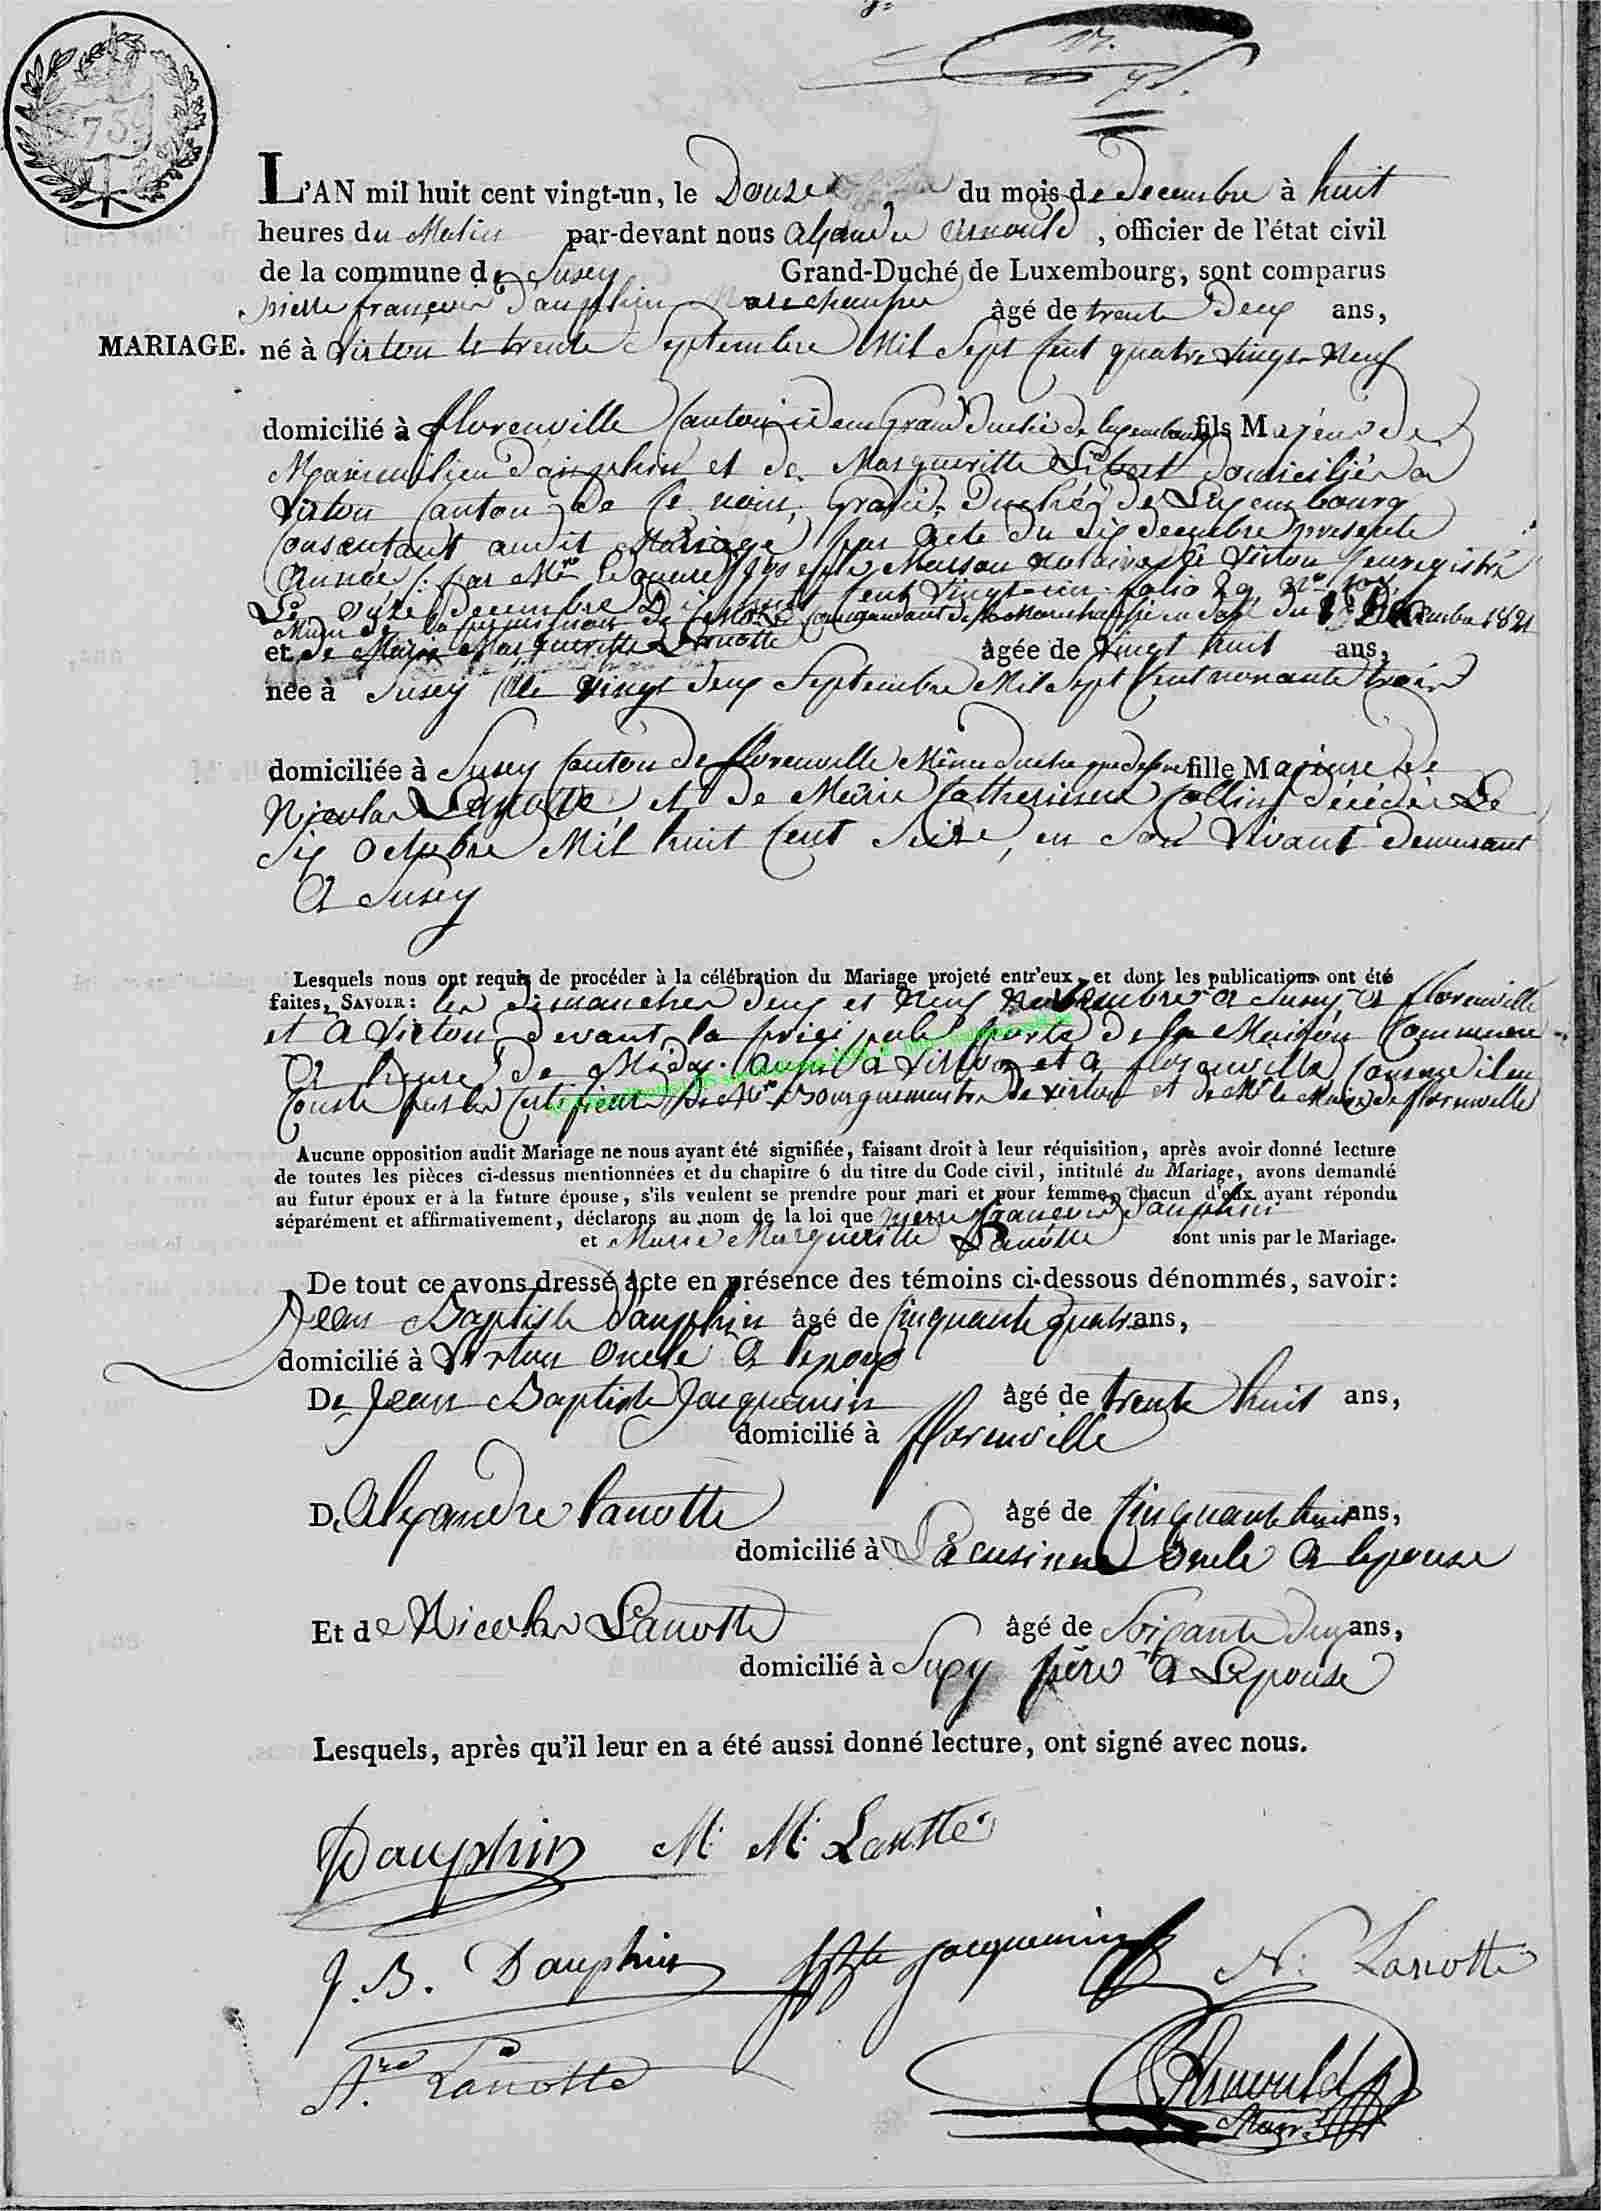 759
L'AN mil huit cent vingt-un, le Douze du mois de decembre à huit
heures du Matin par-devant nous alexandre Arnould, officier de l'état civil
de la commune de Suxey Grand-Duché de Luxembourg, sont comparus
pierre françois Dauphin Marechaussée âgé de trente Deux ans,
MARIAGE. né à virton le trente Septembre Mil Sept Cent quatre vingt Neuf
domicilié à florenville Canton idem Grand Duché de luxembourg fils Majeur de
Maximilien Dauphin et de Margueritte Libert domiciliés a
Virton Canton de ce nom, Grand-Duché de Luxembourg
Consentant audit Mariage par acte du Six decembre presente
Année, par Mre Joseph Massau notaire a Virton enregistré
Le decembre Cent Vingt-un folio 29
de la Commandant de la Marechaussée en date du decembre 1821
et de Marie Margueritte Lanotte âgée de Vingt huit ans,
née à Suxey le vingt deux Septembre Mil Sept Cent nonante trois
domiciliée à Suxey Canton de florenville Même duché que dessus fille Majeure de
Nicolas Lanotte, et de Marie Catherinne Collin décédée Le
Six Octobre Mil huit Cent Seize, en Son Vivant demeurant
A Suxey
Lesquels nous ont requis de procéder à la célébration du Mariage projeté entr'eux, et dont les publications ont été
faites, SAVOIR: les dimanches deux et Neuf decembre a Suxey a florenville
et a Virton devant la principale porte de la Maison Commune
a heure de Midy. a virton et a florenville Comme il en
Conste par les Certificats De Mr Bourguemestre de Virton et de Mr le Maire de florenville
Aucune opposition audit Mariage ne nous ayant été signifiée, faisant droit à leur réquisition, après avoir donné lecture
de toutes les pièces ci-dessus mentionnées et du chapitre 6 du titre du Code civil, intitulé du Mariage, avons demandé
au futur époux et à la future épouse, s'ils veulent se prendre pour mari et pour femme, chacun d'eux ayant répondu
séparément et affirmativement, déclarons au nom de la loi que pierre françois Dauphin
et Marie Margueritte Lanotte sont unis par le Mariage.
De tout ce avons dressé acte en présence des témoins ci-dessous dénommés, savoir:
Jean Baptiste Dauphin âgé de Cinquante quatre ans,
domicilié à Virton oncle a lepoux
De Jean Baptiste Jacquemin âgé de trente huit ans,
domicilié à florenville
De Alexandre Lanotte âgé de Cinquante huit ans,
domicilié à Lacuisinne oncle a lepouse
Et de Nicolas Lanotte âgé de Soixante deux ans,
domicilié à Suxy père a Lepouse
Lesquels, après qu'il leur en a été aussi donné lecture, ont signé avec nous.
Dauphin M: M: Lanotte
J. B. Dauphin Jacquemin N: Lanotte
Are Lanotte
Arnould